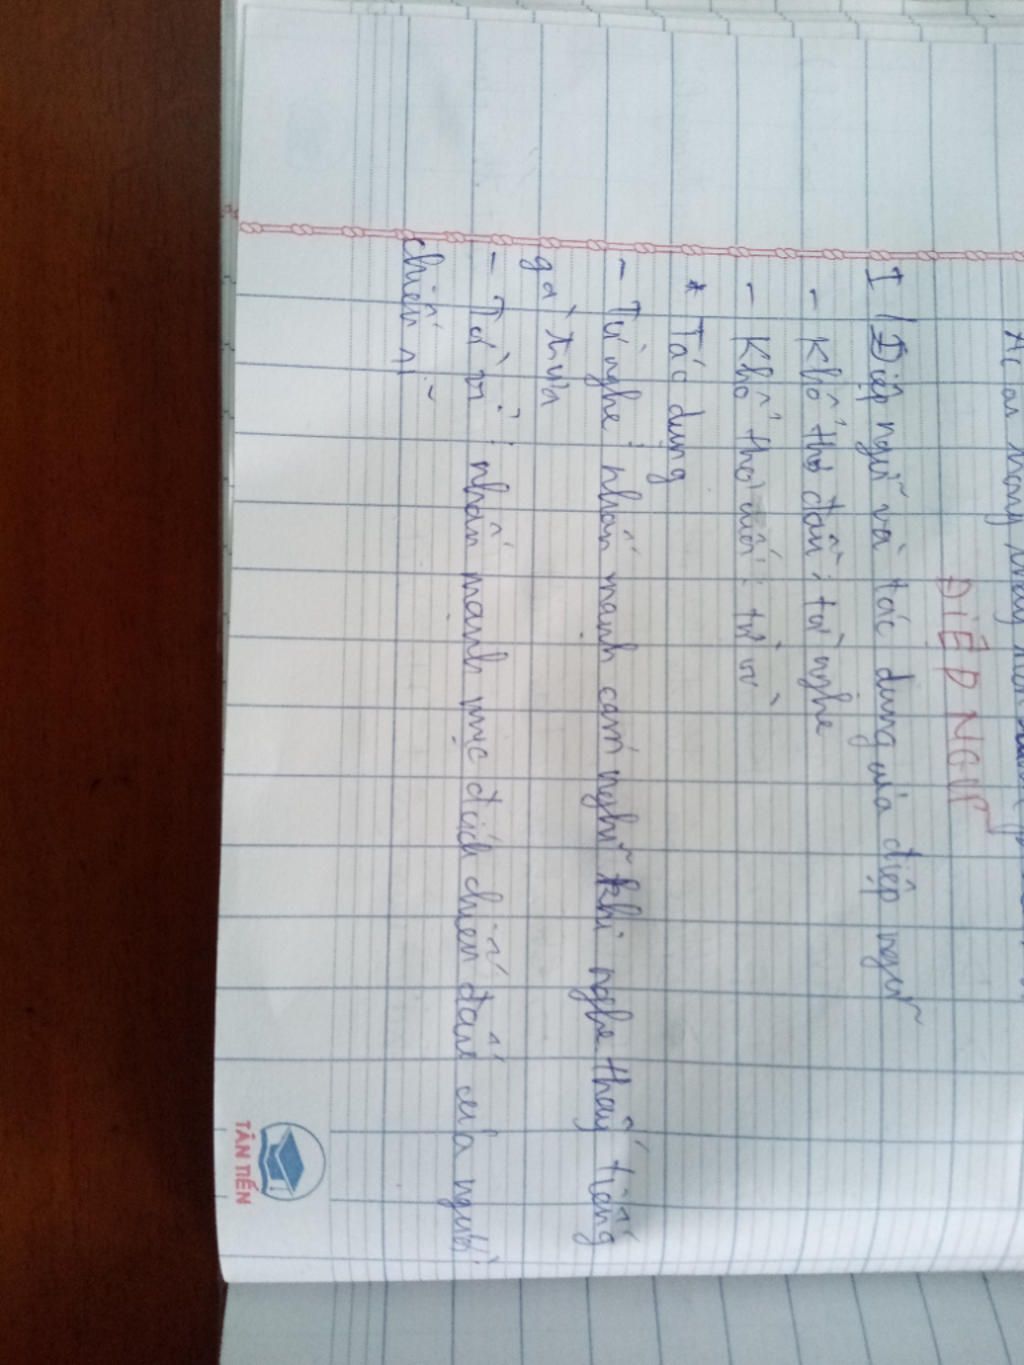 ĐIỆP NGỮ
I / Điệp ngữ và tác dụng của điệp ngữ
- Khổ thơ đầu : từ nghe
- Khổ thơ cuối : từ vì
* Tác dụng
- Từ nghe : nhấn mạnh cảm nghĩ khi nghe thấy tiếng
gà trưa
- Từ vì : nhấn mạnh mục đích chiến đấu của người
chiến sĩ
TÂN TIẾN